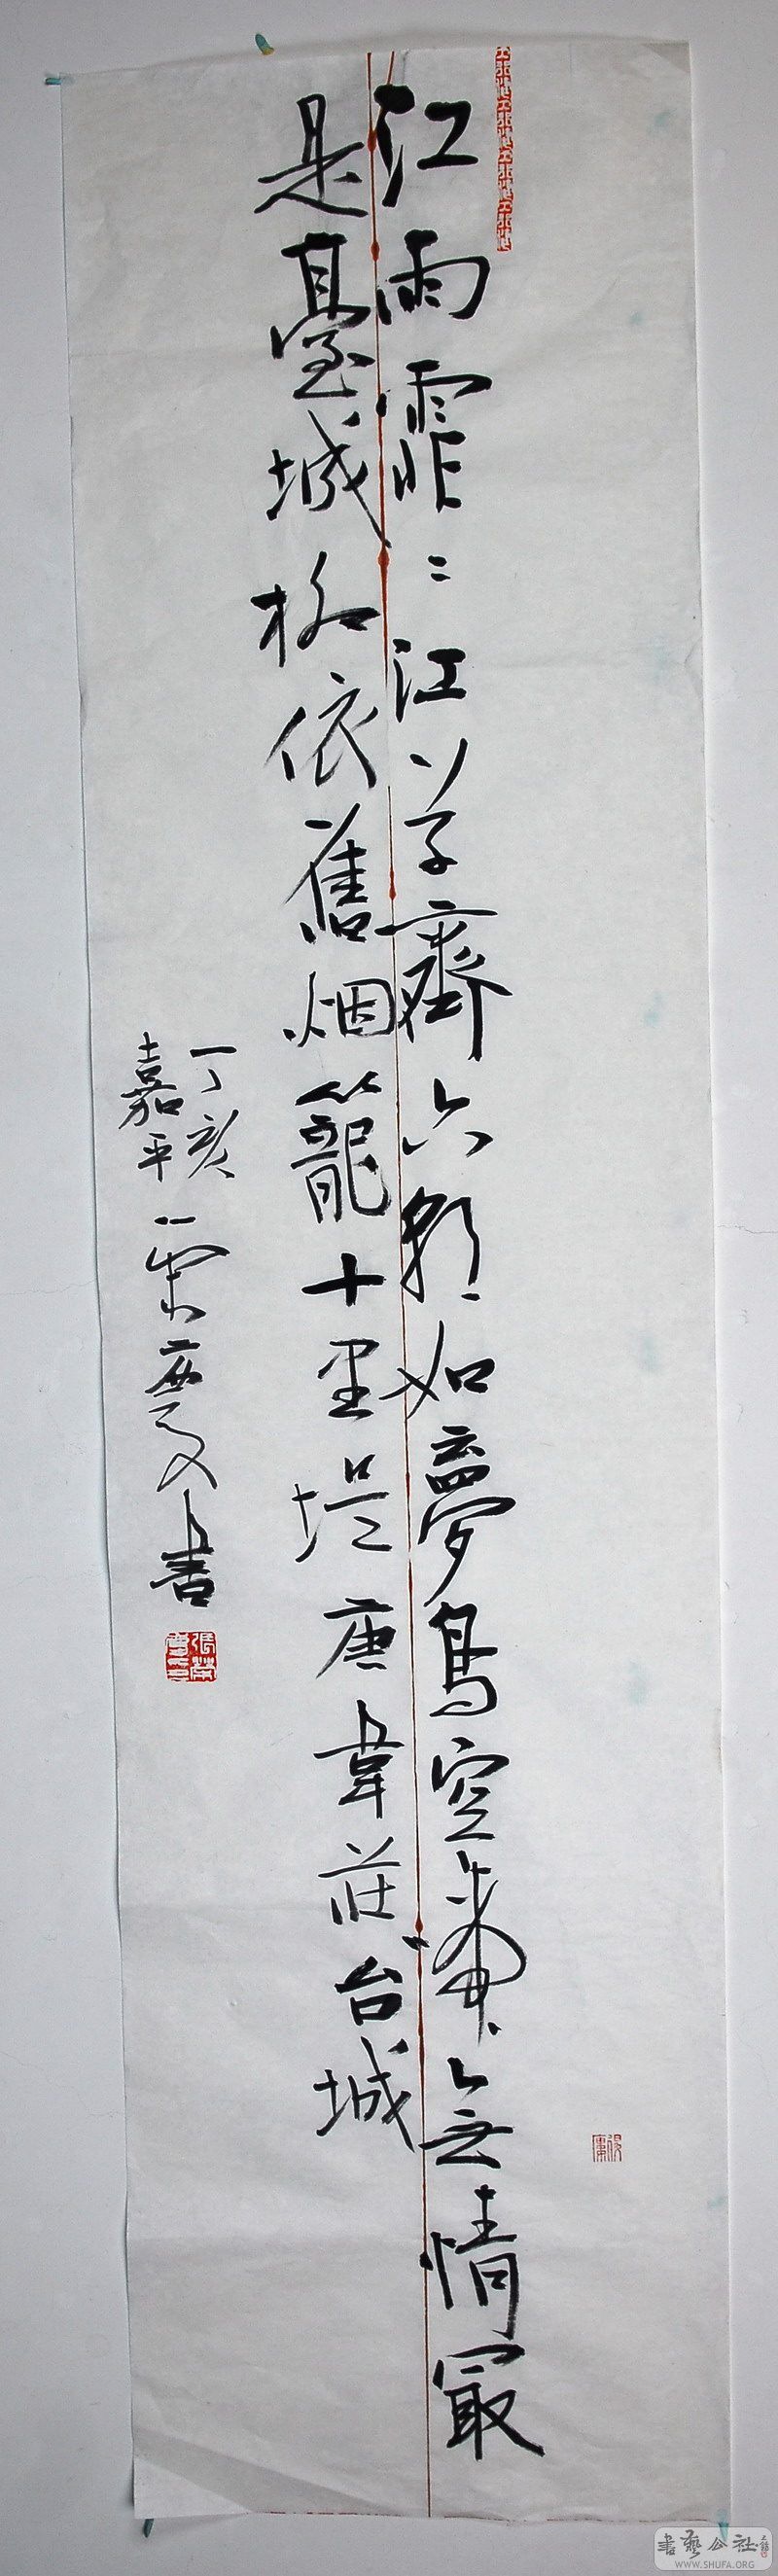 江雨霏〻江草齊六朝如夢鳥空啼無情最
是臺城柳依舊烟籠十里堤唐韋莊台城
丁亥
嘉平
榮慶書
書藝公社
WWW.SHUFA.ORG